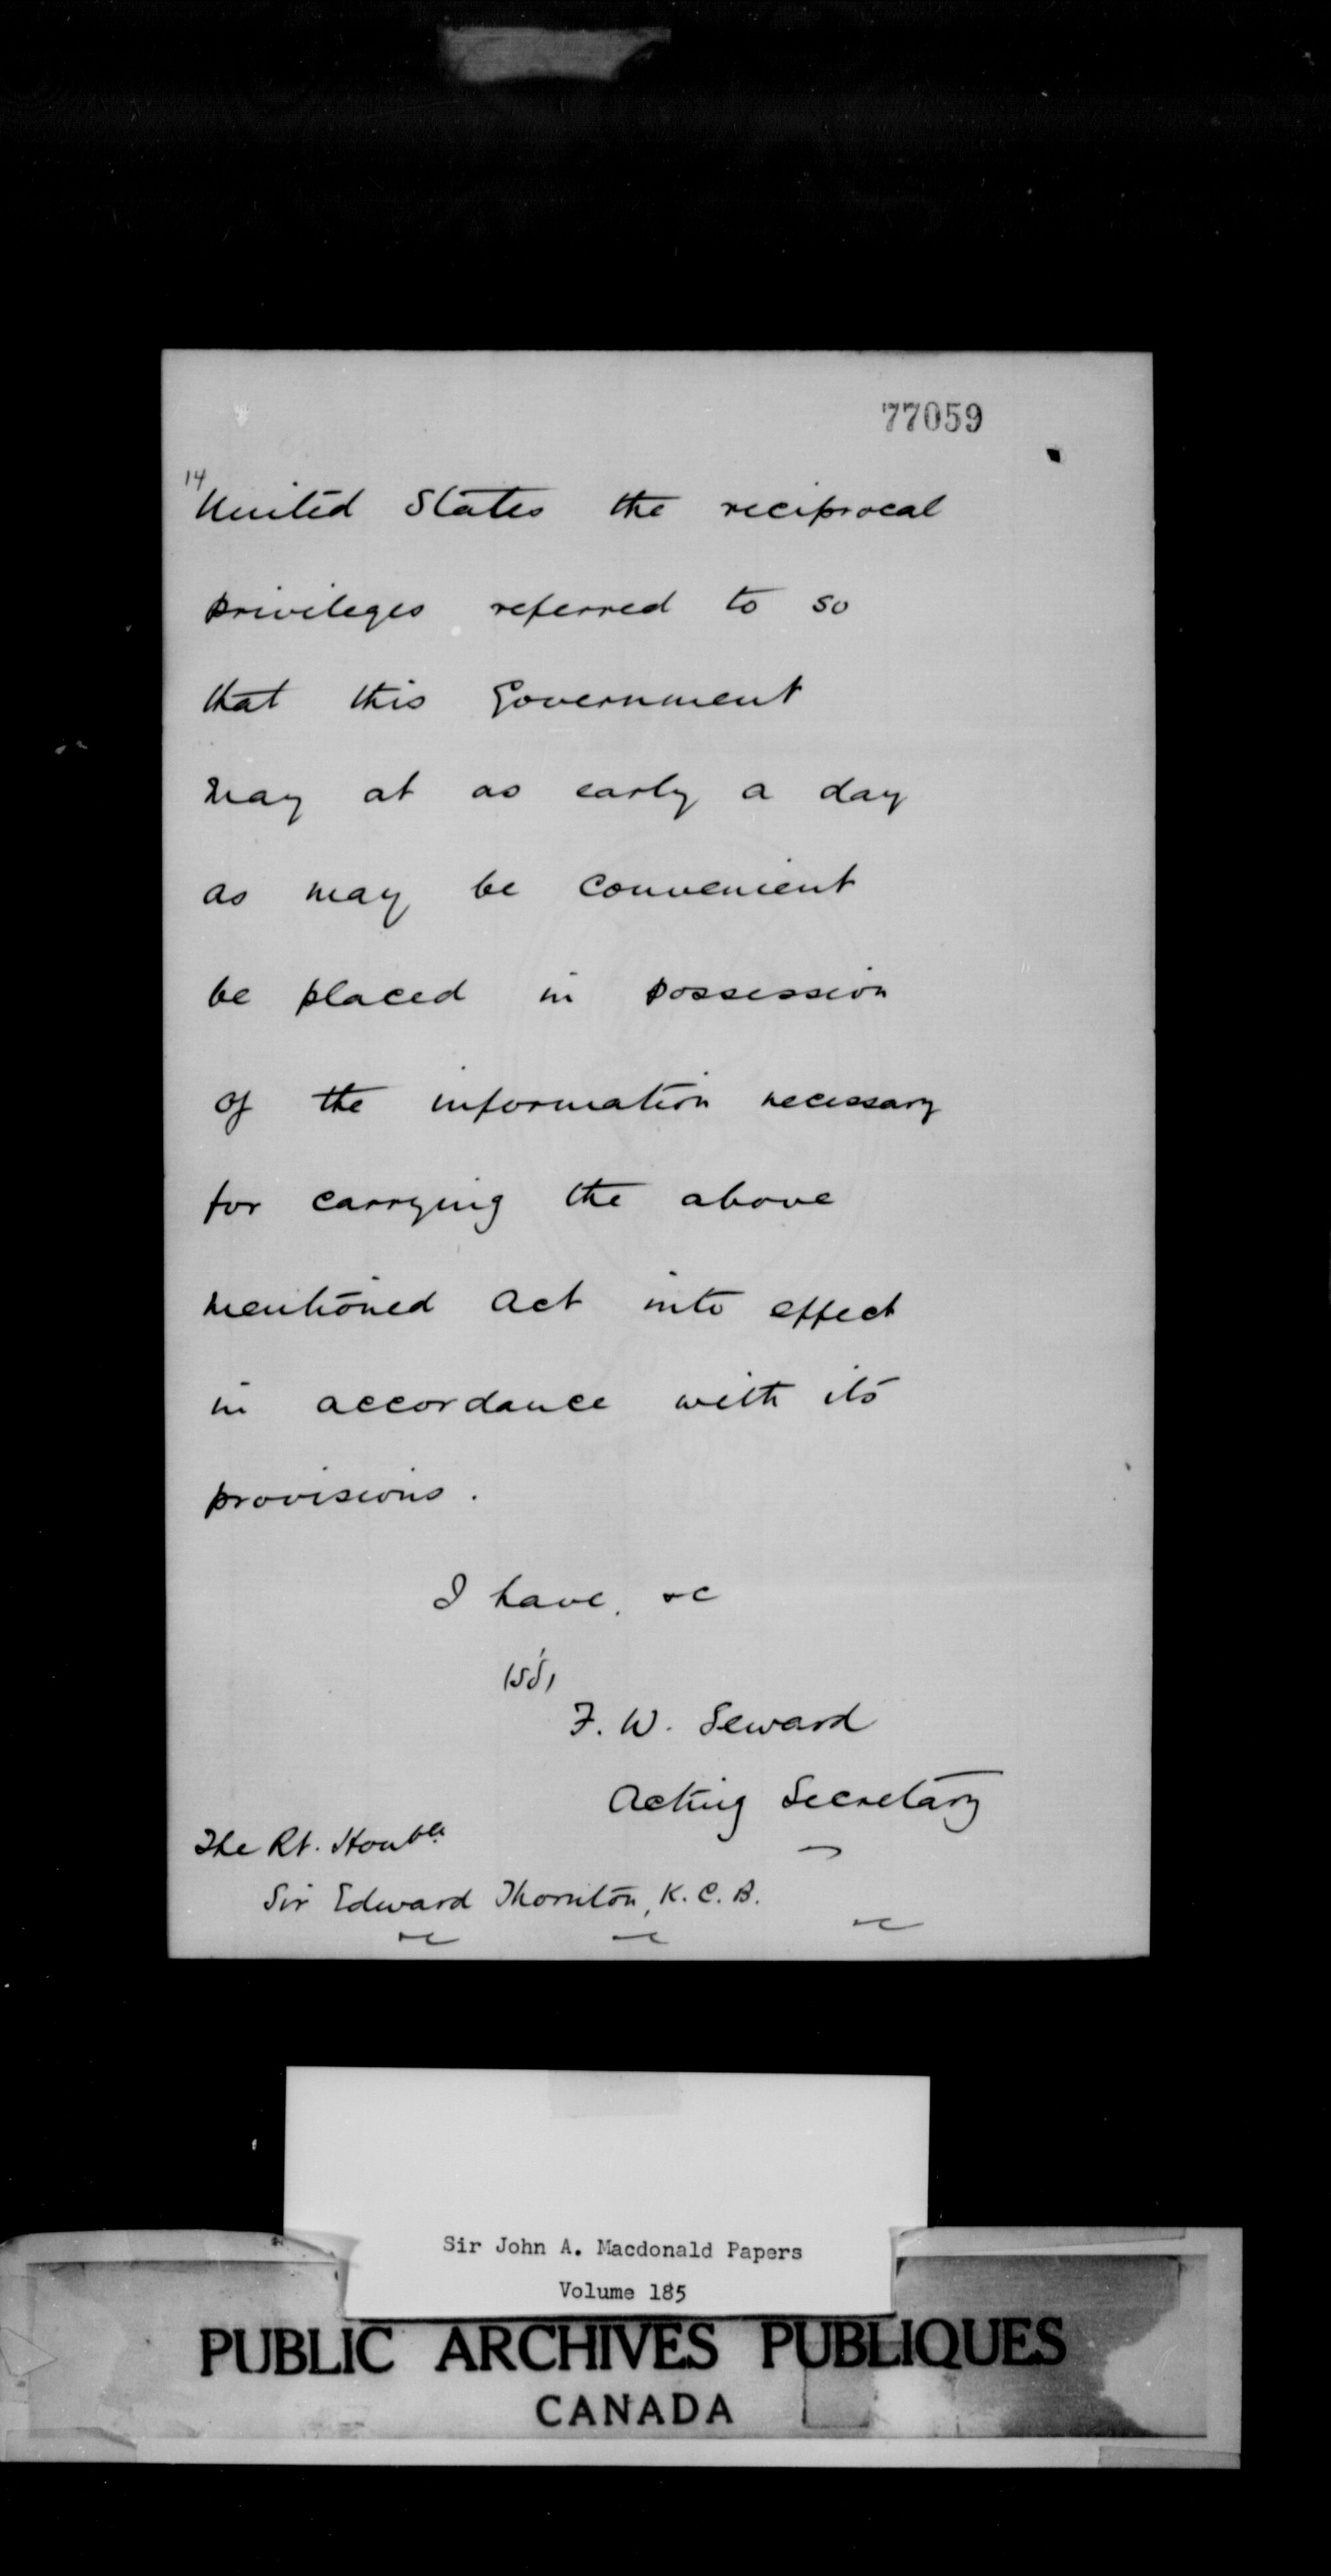 77059
14
United States the reciprocal
privileges referred to so
that this Government
may at as early a day
as may be convenient
be placed in possession
of the information necessary
for carrying the above
mentioned Act into effect
in accordance with its
provisions.
I have, &c
(Sd)
F. W. Seward
Acting Secretary
The Rt. Honble
Sir Edward Thornton, K.C.B.
&c &c &c
Sir John A. Macdonald Papers
Volume 185
PUBLIC ARCHIVES PUBLIQUES
CANADA